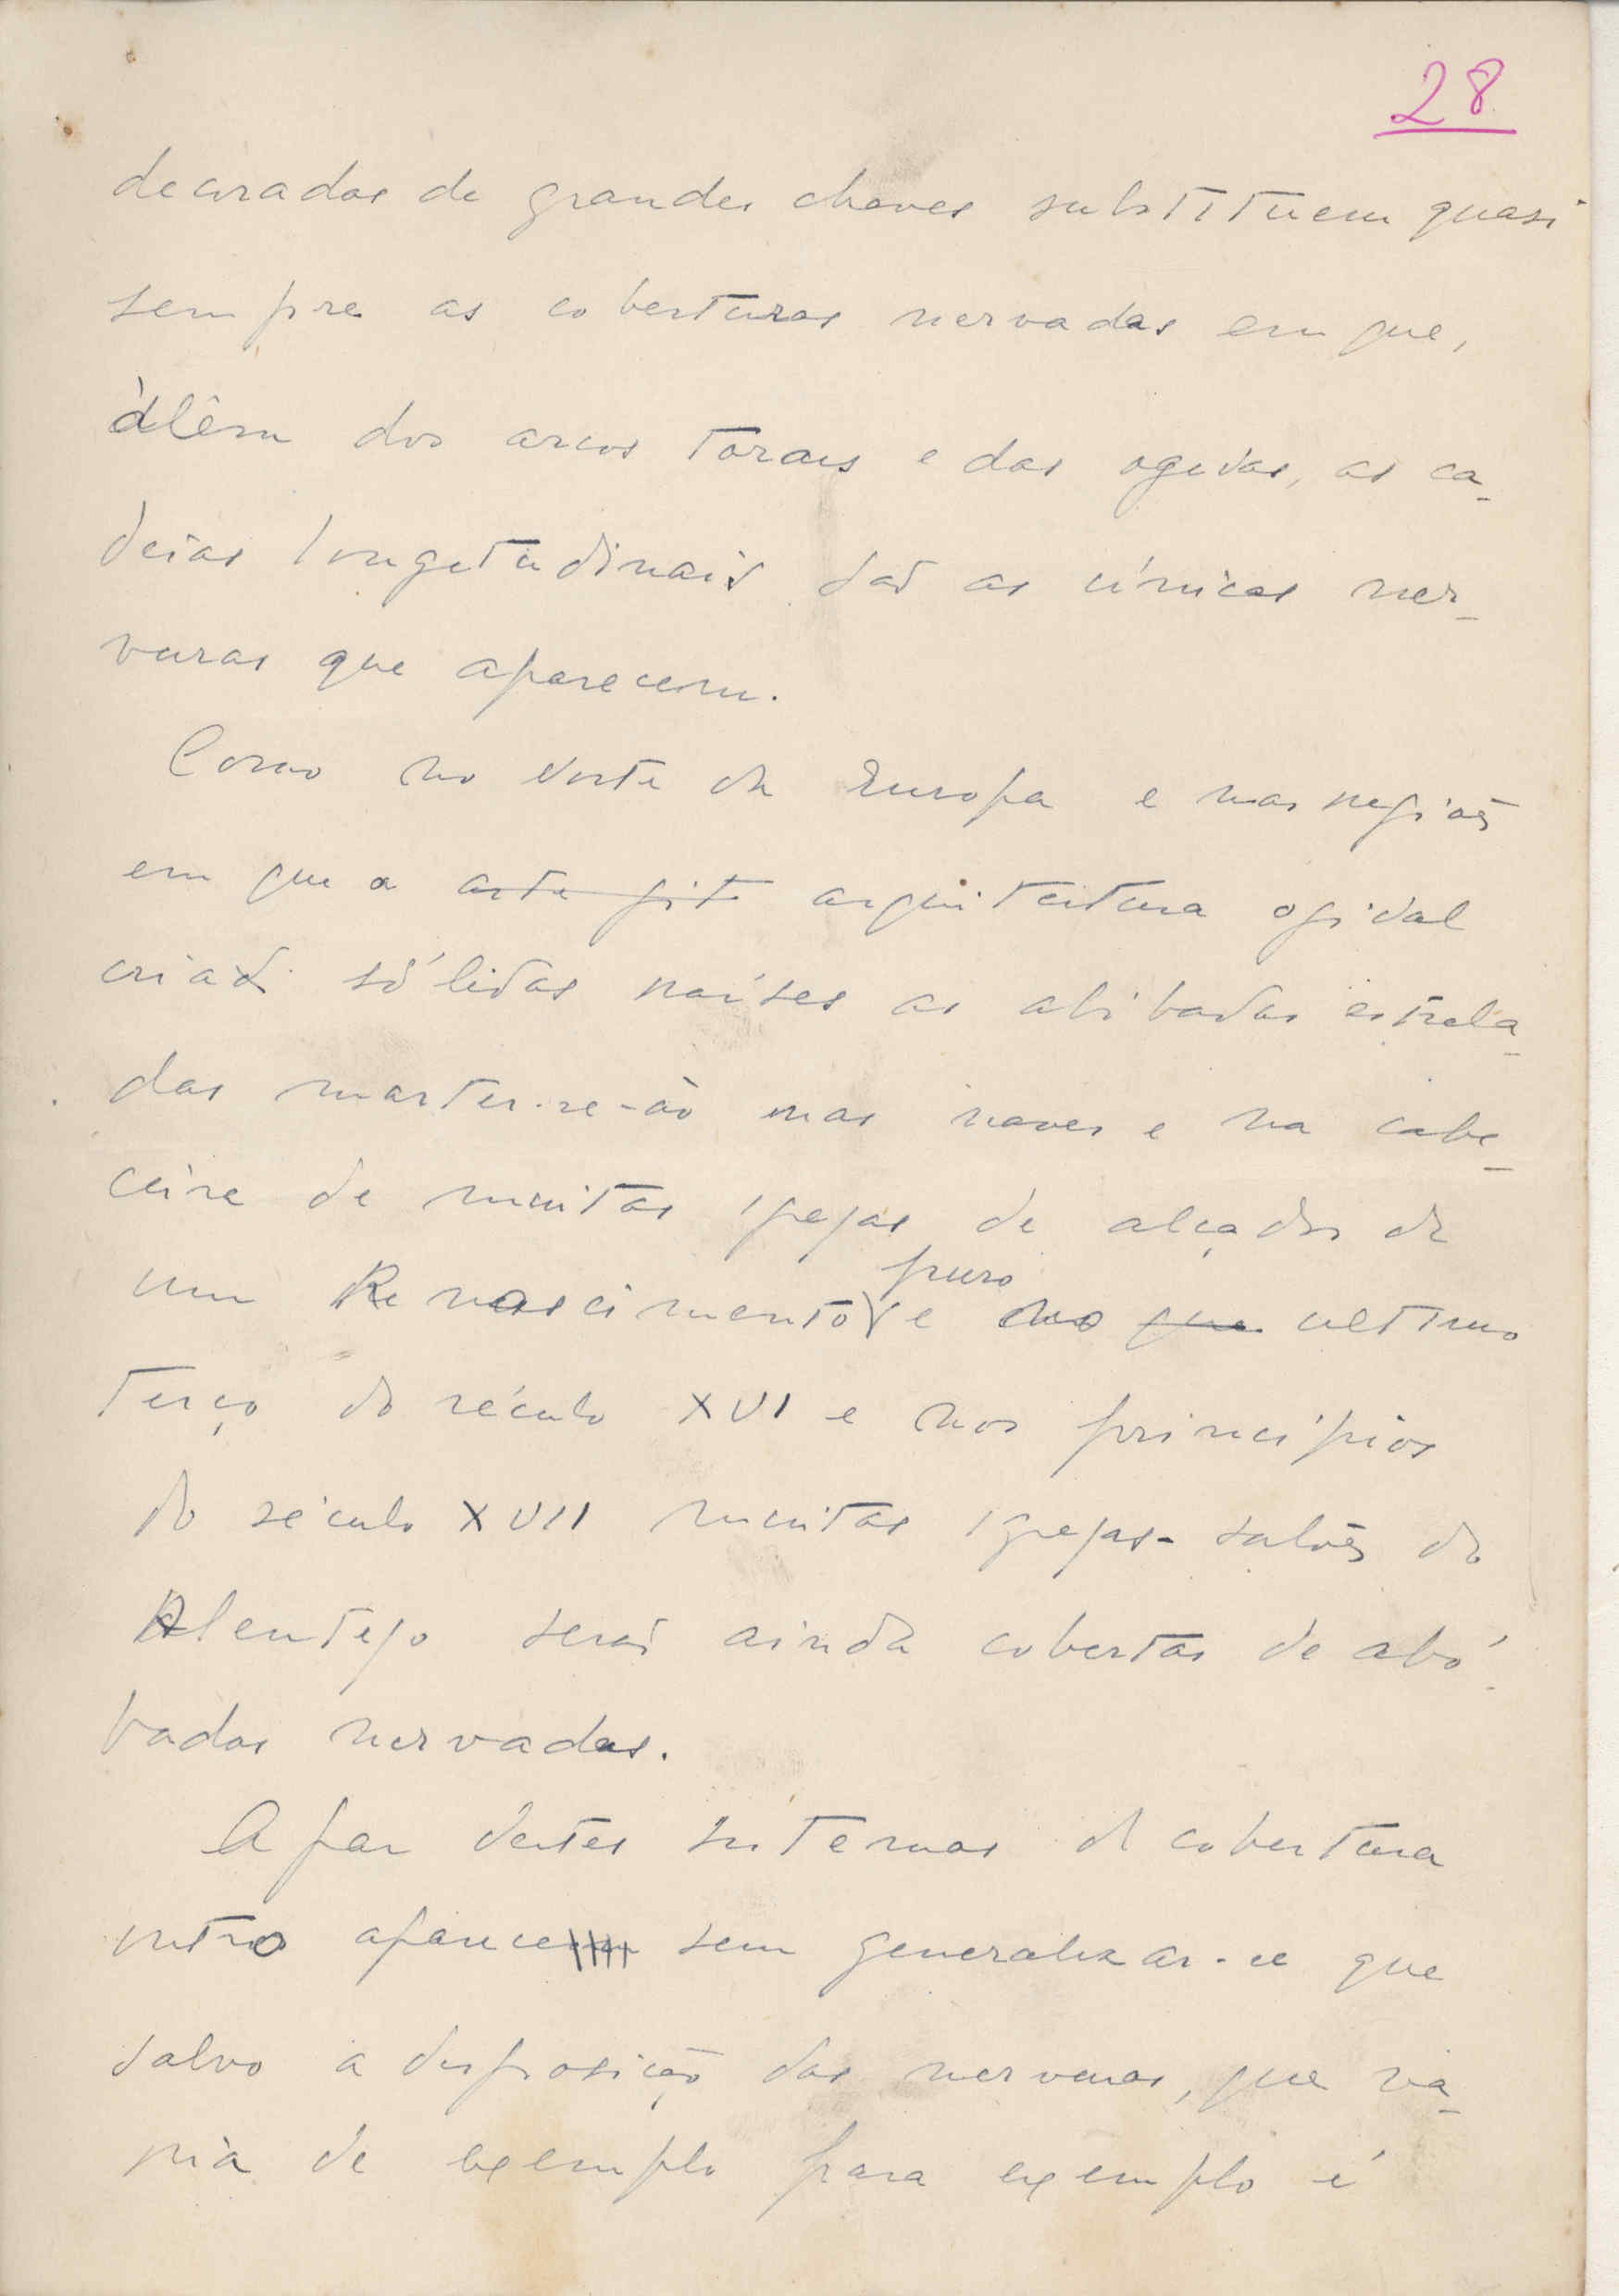 28
decoradas de grandes chaves substituem quasi
sempre as coberturas nervadas em que,
àlêm dos arcos torais e das ogivas, as ca-
deias longitudinais são as únicas ner-
vuras que aparecem.
Como no norte da Europa e nas regiões
em que a arte gót arquitectura ogival
criou sólidas raízes as abóbadas estrela-
das manter-se-ão nas naves e na cabe-
ceira de muitas igrejas de alçados de
puro
um Renascimento e no que ultimo
terço do século XVI e nos princípios
do século XVII muitas igrejas-salões do
Alentejo serão ainda cobertas de abó-
badas nervadas.
A par destes sistemas de cobertura
outro aparece sem generalizar-se que
salvo a disposição das nervuras, que va-
ria de exemplo para exemplo é